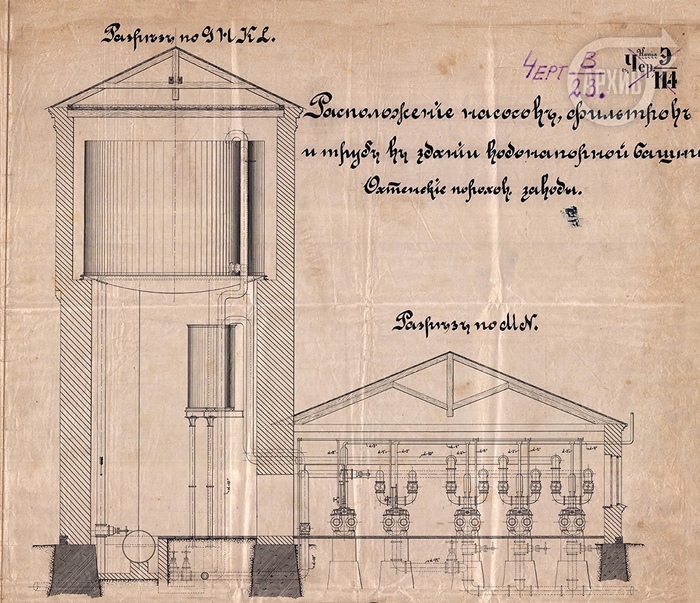 Разрѣзъ по G H K L.
Черт В
23.
Чер. Э
114
АРХИВ
Расположеніе насосовъ, фильтровъ
и трубъ въ зданіи водонапорной башни
Охтенскіе порохов. заводы.
Разрѣзъ по M N.